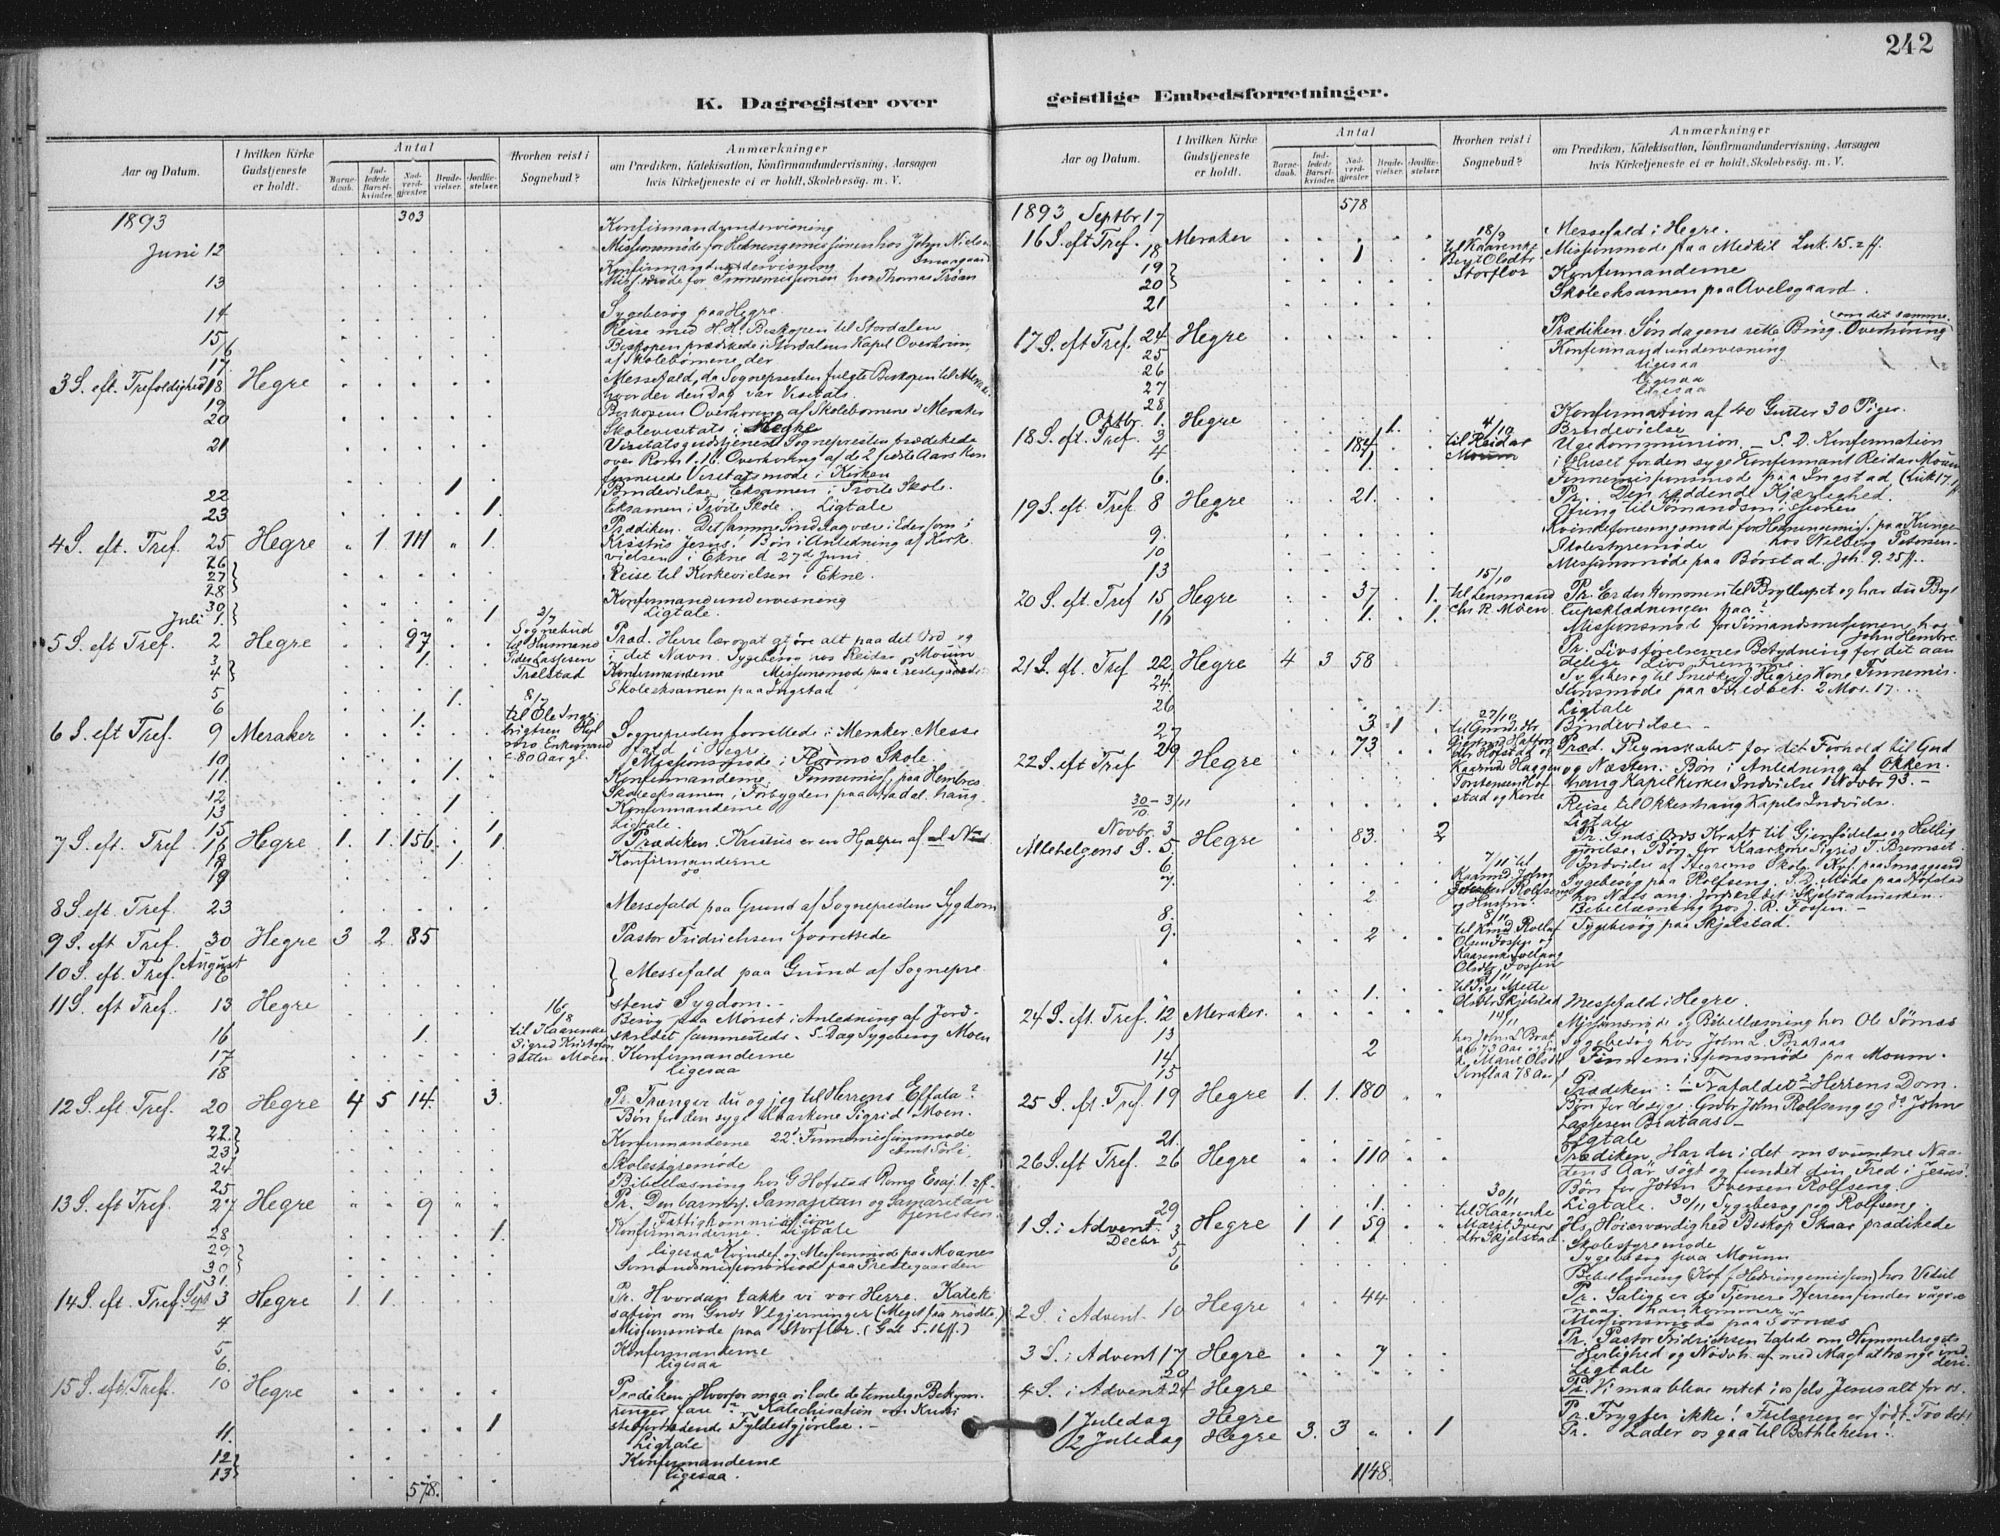 242
K. Dagregister over geistlige Embedsforretninger.
Aar og Datum.
I hvilken Kirke Gudstjeneste er holdt.
Antal
Barnedaab.
Indledede Barselkvinder.
Nadverdgjester
Brudevielser.
Jordfæstelser.
Hvorhen reist i Sognebud?
Anmærkninger
om Prædiken, Katekisation, Konfirmandundervisning, Aarsagen
hvis Kirketjeneste ei er holdt, Skolebesøg. m. V.
1893 303
Konfirmandundervisning
Juni 12 Missionsmøde for Hedningemissionen hos John Nielsen
Konfirmandundervisning
13 Missmøde for Innemissionen hos Thomas
14 Sygebesøg paa Hegre
15 Reise med H. H. Biskopen til Stordalen
Biskopen prædikede i Stordalens Kapel Overhørin
af Skolebørnene der
17
3 S. eft. Trefoldighed 18 Hegre Messefald, da Sognepresten fulgte Biskopen til Merak
hvor der den Dag var Visitats.
19 Biskopens Overhøring af Skolebørnene i Meraker
20 Skolevisitats i Hegre
21 Visitatsgudstjeneste Sognepresten prædikede
over Rom 1. 16. Overhøring af de 2 sidste Aars Kon
firmerede Visitatsmøde i Kirken
22 1 Brudevielse Eksamen i Skole.
23 1. Eksamen i Skole. Ligtale
4 S. eft. Tref. 25 Hegre " 1 111 " 1. Prædiken. Det samme Sindelag være i Eder som i
Kristus Jesus. Bøn i Anledning af Kirk
vielsen i Ekne d 27d Juni
26
27 Reise til Kirkevielsen i Ekne.
28
30 Konfirmandundervisning
Juli 1. 1 Ligtale.
5 S. eft Tref. 2 Hegre 97 2/7 Sognebud til Husmand
Præd. Herre lær ogat gjøre alt paa det Ord og
i det Navn. Sygebesøg hos Reidar Mouum
3 1.
4 Konfirmanderne Missionsmøde paa Prestegaard
5 1. Skoleeksamen paa Ingstad
6
6 S. eft Tref. 9 Meraker 1. 8/7 til Ole Inge
brigtsen
80 Aar gl. Sognepresten forrettede i Meraker. Messe
fald i Hegre
10 Missionsmøde i Skole
11. 1. Konfirmanderne. Innemis. paa Hembre
12 Skoleeksamen i Forbygden
13 1 Konfirmanderne
15 1 Ligtale
7 S. eft Tref 16 Hegre 1. 1. 156 1. Prædiken. Kristus er en Hjælper af al Nød
18 1 Konfirmanderne
19 do
8 S. eft. Tref. 23 Messefald paa Grund af Sognepredens Sygdom
9 S. eft Tref. 30 Hegre 3 2. 85 Pastor Fridrichsen forrettede
10 S. eft. Tref. August 6 Messefald paa Grund af Sognepre
11 S. eft Tref. 13 Hegre stens Sygdom.
16 1. 16/8 til Kaarenke
Sigrid Kristofer
datter Moen Besøg paa Morset i Anledning af Jord
skredet sammesteds. S. Dag Sygebesøg Moen
17 Konfirmanderne
18 ligesaa
12 S. eft. Tref. 20 Hegre 4 5 14. 3. Pr. Trænger du og jeg til Herrens Effata?
Bøn for den syge Kaarkone Sigrid Moen.
22. Konfirmanderne 22d Innemissionsmøde
23
24 Skolestyremøde
25 Bibellæsning hos G Hofstad
13 S. eft Tref. 27 Hegre " " 9 " " Pr. Den barmhj. Samaritan og Samaritan
tjenesten
Fattigkommission
28 1. Konfirmanderne. Ligtale
29 ligesaa Kvindef. og Missionsmøde paa Moanes
30
31. Sømandsmissionsmøde paa Prestegaarden
14 S. eft. Tref. Sept 3 Hegre 1. 1. Pr. Hvordan takke vi vor Herre. Katek
sation om Guds Velgjerninger (Meget faa mødte)
4. Missionsmøde paa Storflor. (Gal 5. 16ff.)
5. Konfirmanderne
6. ligesaa
15 S. eft. Tref. 10 Hegre Prædiken: Hvorfor maa vi lade de timelige Bekym
ringer fare? Katechisation om Kristi
stedfortrædende Fyldestgjørelse.
11. 1 Ligtale
12 Konfirmanderne
13 ligesaa.
578.
1893 Septbr 17 578
16 S. eft Tref. Meraker 18/9 Messefald i Hegre.
18 1 til Kaarenke
Berit Olsdtr
Storflor Missionsmøde paa Medkil Luk. 15. 2 ff.
19 Konfirmanderne
20
21 Skoleeksamen paa Avelsgaard.
17 S. eft Tref. 24 Hegre Prædiken. Søndagens rette Brug. Overhøring
(om det samme.)
25 Konfirmandundervisning
26 ligesaa
27 ligesaa
28 ligesaa
Oktbr. 1. Hegre 1. 4/10 Konfirmation af 40 Gutter 30 Piger.
Brudevielse
18 S. eft. Tref. 3 184 til Reidar
Mouum Ugekommunion – S. D. Konfirmation
4 1. i Huset for den syge Konfirmant Reidar Mouum
6. Innemissionsmøde paa Ingstad (Luk 17. 1 ff
19 S. eft Tref. 8 Hegre 21. Pr. Den reddende Kjærlighed.
Ofring til Sømandsmissionen
9. Kvindeforeningsmøde for Hedningemis. paa Kringe
10 Skolestyremøde hos Petersen.
13 Missionsmøde paa Børstad. Joh. 9. 25 ff.
20 S. eft. Tref 15 Hegre 37 1. 15/10 til Lensmand
Chr R. Moen Pr. Er du kommen til Brylluppet og har du Bryl
lupsklædningen paa?
16 1. 1. Missionsmøde for Sømandsmissionen hos
John Hembre.
21 S. eft. Tref 22. Hegre 4 3 58 Pr. Livsførelsernes Betydning for det aan
delige Livs Fremme.
24. Sygebesøg til Snedker J. Hegres Kone Innemis
sionsmøde paa 2 Mos. 17.
26 1. Ligtale
27 3 1 27/10 Brudevielse
22 S. eft Tref 29 Hegre 73 Præd. Regnskabet for dit Forhold til Gud
og Næsten. Bøn i Anledning af Okken
haug Kapelkirkes Indvielse 1 Novbr 93.
30/10 – 3/11 Reise til Okkenhaug Kapels Indvielse.
Novbr. 3 Ligtale
Allehelgens S. 5. Hegre 83. 2 Pr. Guds Ords Kraft til Gjenfødelse og Hellig
gjørelse. Bøn for Kaarkone Sigrid T. Bremset
6. 7/11 til
Kaarmd John
Iversen Rolfseng
og Hustru. Indvielse af Hegremo Skole.
7. 2 Sygebesøg paa Rolfseng. S. D. Møde paa Hofstad
8. Bibellæsning hos J. R. Fossen.
9. 2 8/11 Sygebesøg paa Skjelstad.
til Knud Rollaf
Olsen Fossen og
Kaarenke
Olsdtr Fossen
1. 9/11 til Pige Mette
Olsdtr Skjelstad
24 S. eft. Tref. 12 Meraker. Messefald i Hegre.
13 14/11 Missionsmøde og Bibellæsning hos Ol Sørnæs
14. 2 hos John L Brat
aas 73 Aar og
Marit Olsdtr
78 Aar Sygebesøg hos John L. Brataas
15 Innemissionsmøde paa Mouum.
25 S. eft. Tref. 19 Hegre 1. 1. 180 Prædiken: 1. Frafaldet 2 Herrens Dom.
Bøn for de syge Grdbr John Rolfseng og do John
Larssen Brataas
21. Ligtale
26 S. eft Tref. 26 Hegre 110 Prædiken, Har du i det omsvundne Naa
dens Aar søgt og fundet din Fred i Jesus.
Bøn for John Iversen Rolfseng.
29 1. 30/11 til Kaarenke
Marit Ivers
dtr Skjelstad Ligtale. 30/11 Sygebesøg paa Rolfseng
1 S. i Advent. Decbr 3 Hegre 1 1 59 Hs Høiærværdighed Biskop Skaar prædikede
5 Skolestyremøde
6 Sygebesøg paa Mouum
Bibellæsning (Kof. f. Hedningemission) hos
2 S. i Advent. 10 Hegre 44 Pr. Salige er de Tjenere Herren finder vaagne
naar han kommer
Missionsmøde paa Sørnæs
3 S. i Advent 17 Hegre 7 Pr. Pastor Fridrichsen talede om Himmelrigets
Herlighed og Nødv. af med Magt at trænge ind
deri
20 Ligtale
4 S. i Advent 24 Hegre Pr. Vi maa blive intet i os selv Jesus alt for os.
1 Juledag Hegre Pr. Frygter ikke! Frelseren er født. Tro det!
2 Juledag Hegre 3. 3 " 1 Pr. Lader os gaa til Bethlehem.
1148.